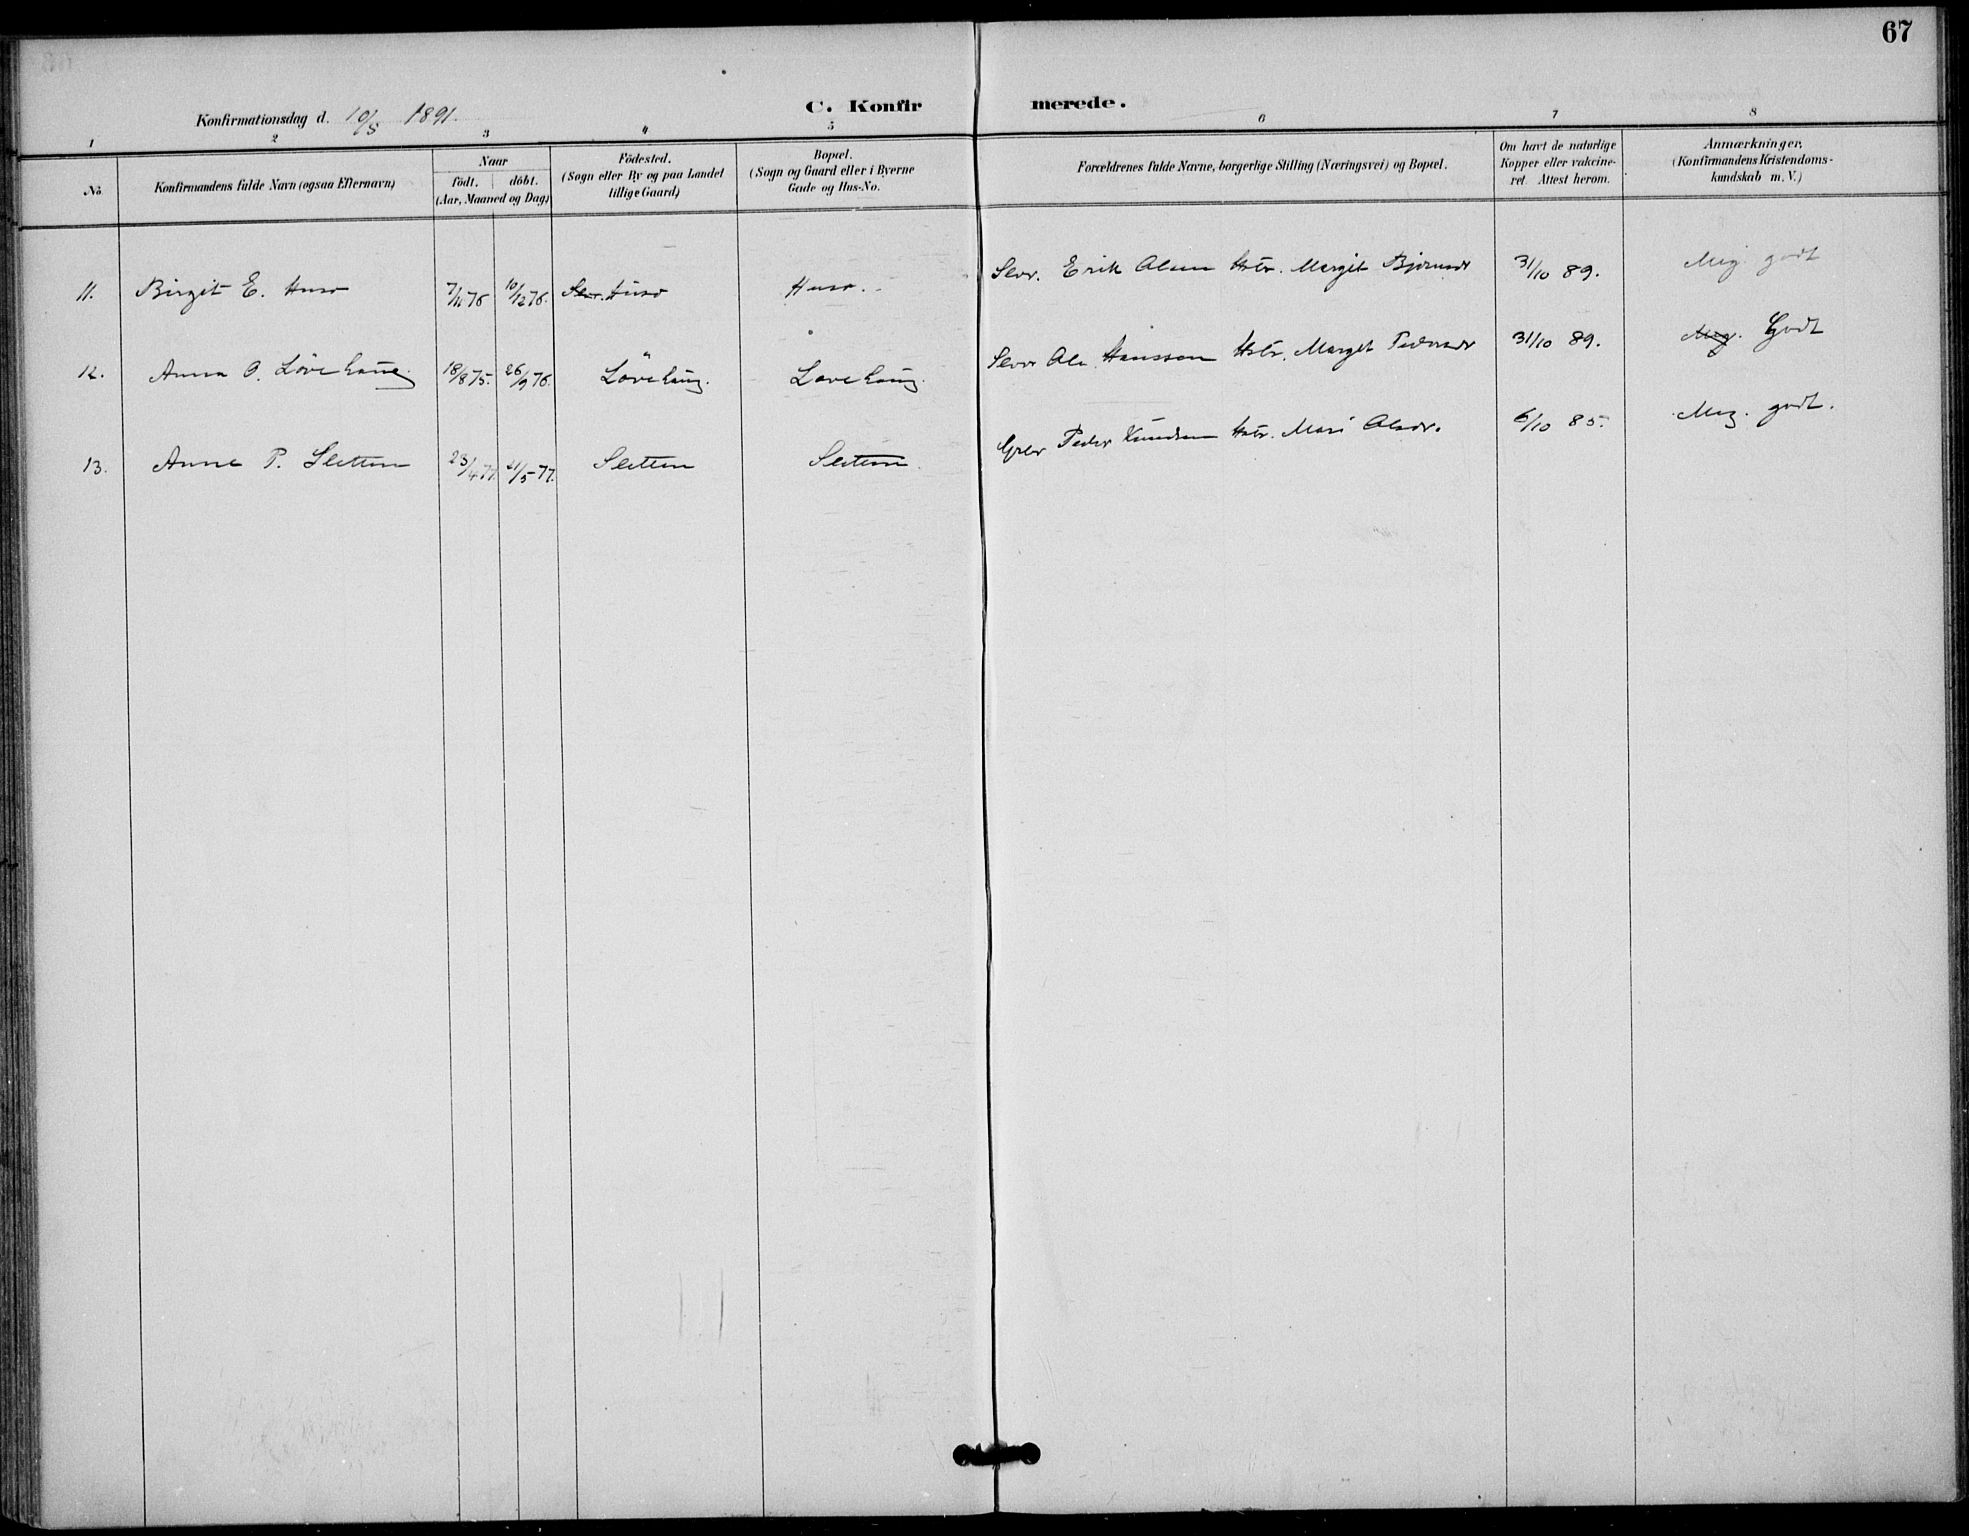 67
C. Konfirmerede.
Konfirmationsdag d. 10/5 1891.
1 2 3 4 5 6 7 8
No
Konfirmandens fulde Navn (ogsaa Efternavn)
Naar
født. døbt.
(Aar, Maaned og Dag)
Födested.
(Sogn eller By og paa Landet
tillige Gaard)
Bopæl.
(Sogn og Gaard eller i Byerne
Gade og Hus-No.
Forældrenes fulde Navne, borgerlige Stilling (Næringsvei) og Bopæl.
Om havt de naturlige
Kopper eller vakcine-
ret. Attest herom.
Anmærkninger.
(Konfirmandens Kristendoms-
kundskab m. V.)
11. Birgit E. Huso 7/11 76 10/12 76. Huso Huso. Selvr. Erik Olsen Hstr. Margit Bjørnsdr 31/10 89. Meg. godt
12. Anna O. Løvehaug 18/8 75. 26/9 76. Løvehaug. Løvehaug. Selvr Ole Hansson Hstr. Margit Pedersdr 31/10 89. Meg. Godt
13. Anne P. Sletten 23/4 77. 21/5 77. Sletten Sletten. Peder Knudsen Hstr. Mari Olsdr. 6/10 85. Meg. godt.